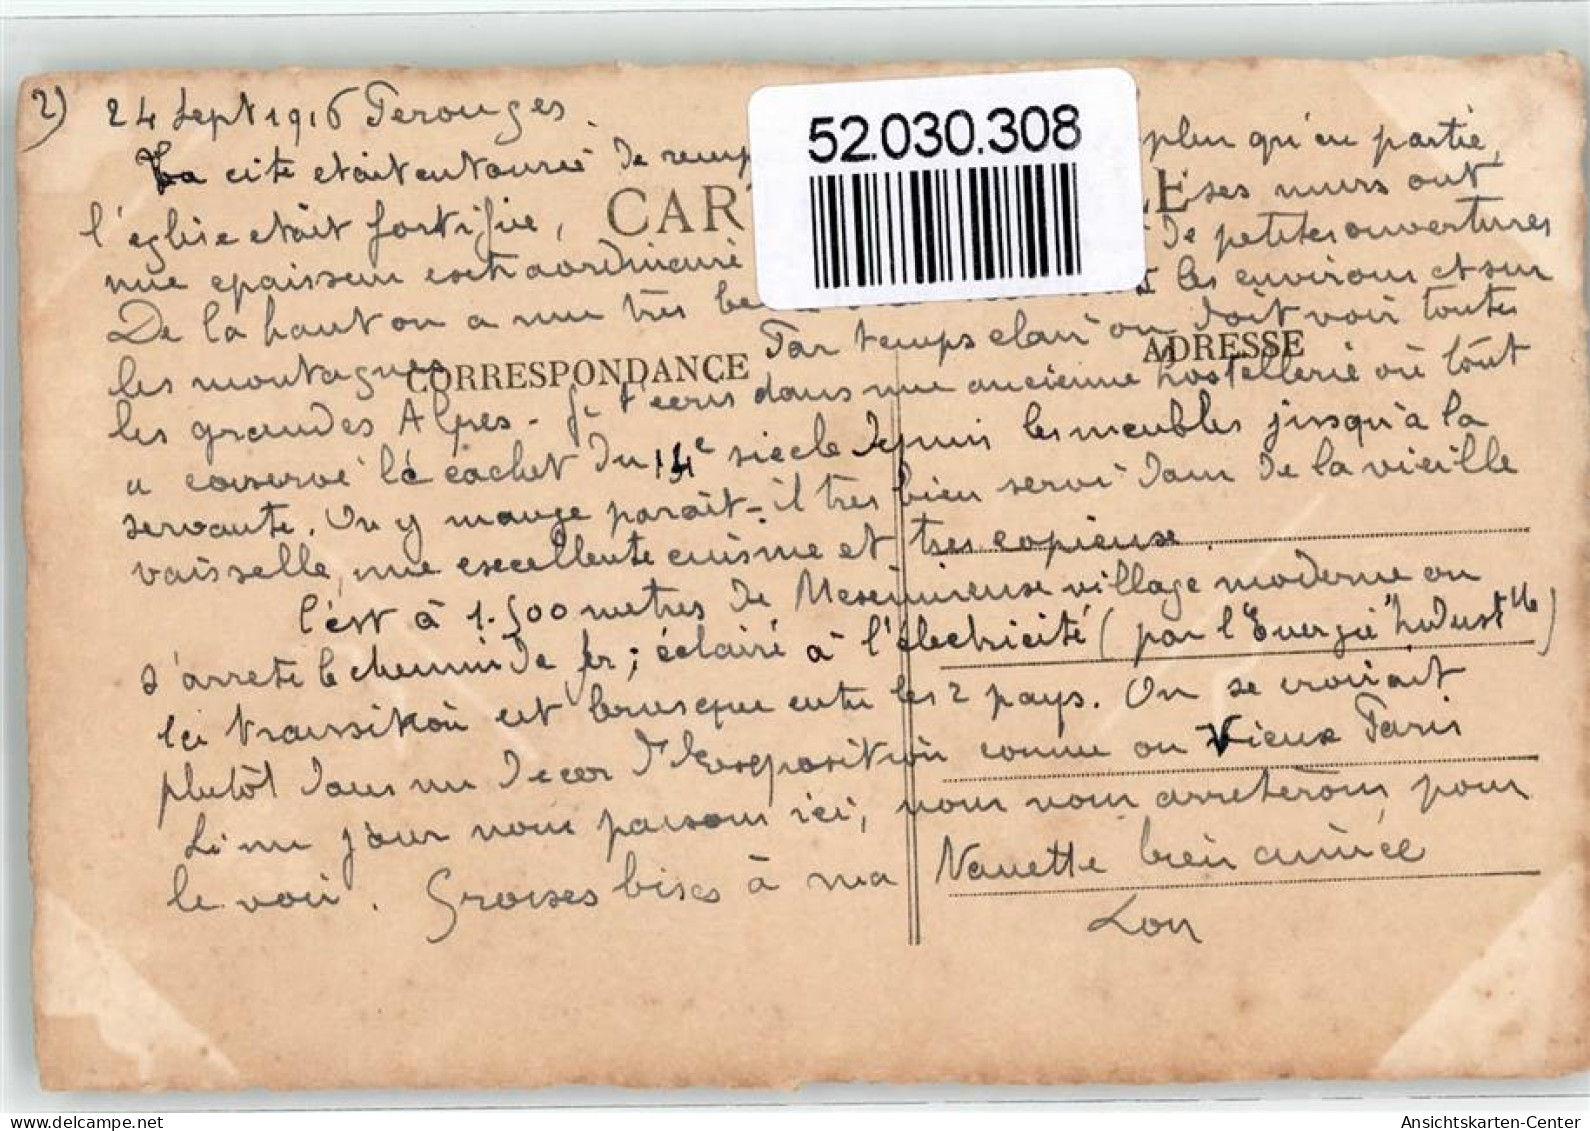 2) 24 Sept 1916 Perouges.
La cité était entourée de remp plus qu'en partie,
l'église etait fortifiée, ses murs ont
CAR E
une epaisseur extraordinaire de petites ouvertures
De la haut on a une très be les environs et sur
les montagnes Par temps clair on doit voir toutes
CORRESPONDANCE ADRESSE
les grandes Alpes - Je t'ecris dans une ancienne hostellerie où tout
a conservé le cachet du 14e siecle depuis les meubles jusqu'à la
servante. On y mange parait-il tres bien servi dans de la vieille
vaisselle, une excellente cuisine et tres copieuse.
C'est à 1.500 metres de Meximieux village moderne ou
s'arrete le chemin de fer; éclairé à l'électricité (par l'"Energie" Indust lle)
La transition est brusque entre les 2 pays. On se croirait
plutôt dans un decor d'Exposition comme au Vieux Paris
Si un jour nous passons ici, nous nous arreterons pour
le voir. Grosses bises à ma Nanette bien aimée
Lou
52.030.308
delcampe.net
Ansichtskarten-Center